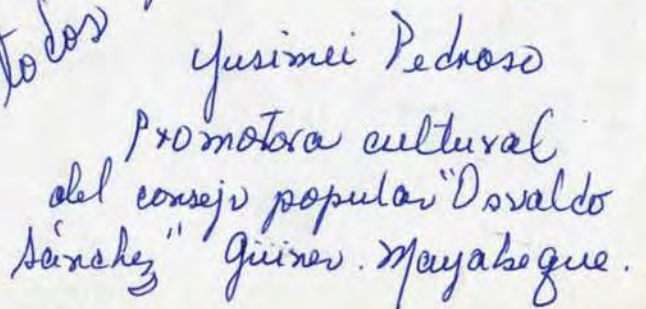 todos
Yusimei Pedroso
Promotora cultural
del consejo popular "Osvaldo
Sánchez" Güines. Mayabeque.